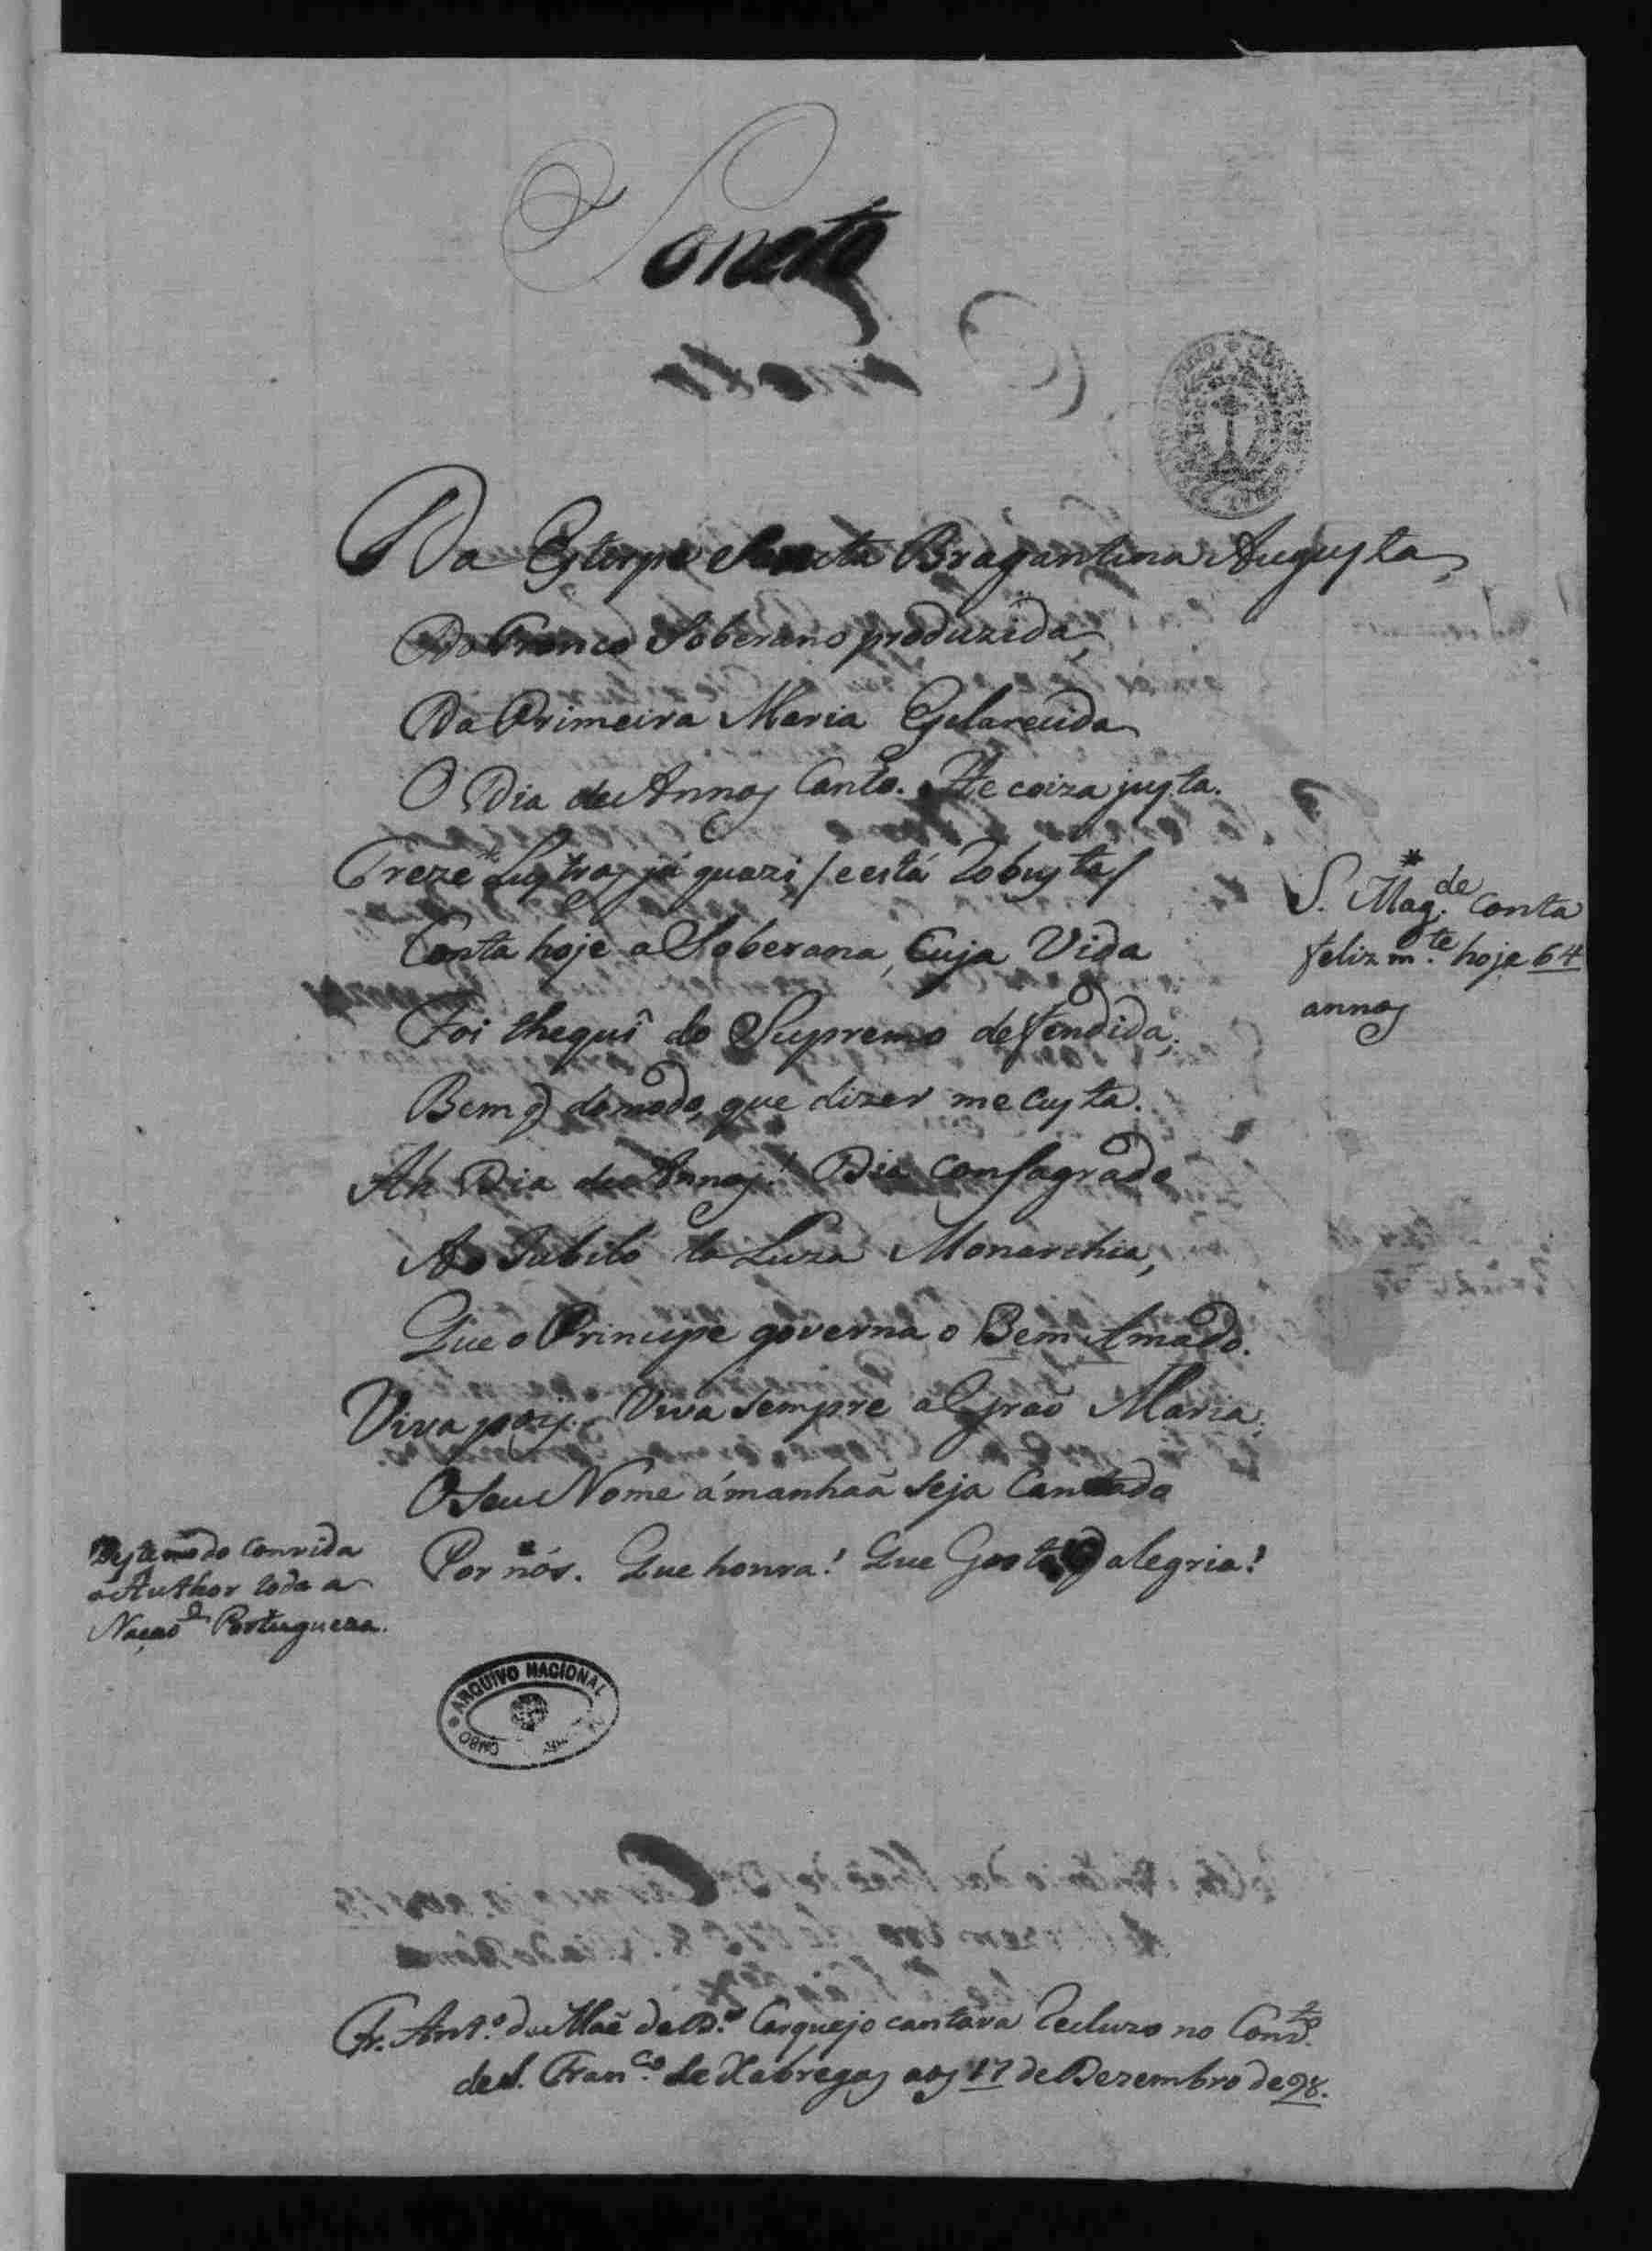 Soneto
Da Estirpe Selecta Bragantina Augusta,
Do Tronco Soberano produzida,
Da Primeira Maria Esclarecida
O Dia de Annos Canto. He coiza justa.
Treze * Lustros já quazi /e está Robusta/
Conta hoje a Soberana, Cuja Vida
Foi thequî do Supremo defendida;
Bem q̃ do modo, que dizer me Custa.
Ah Dia de Annos! Dia Consagrado
Ao Jubilo da Luza Monarchia,
Que o Principe governa, o Bem Amado.
Viva pois. Viva sempre a Grão Maria.
O Seu Nome ámanhaã seja Cantado
Por * nós. Que honra! Que Gosto, q̃ alegria!
* S. Mag.de Conta
felizm.te hoje 64
annos
Deste modo Convida
o Author toda a
Nação Portugueza.
ARQUIVO NACIONAL
Fr. Ant.º da Mãe de D.s Carquejo cantava Recluzo no Conv.to
de S. Fran.co de Xabregas aos 17 de Dezembro de 98.